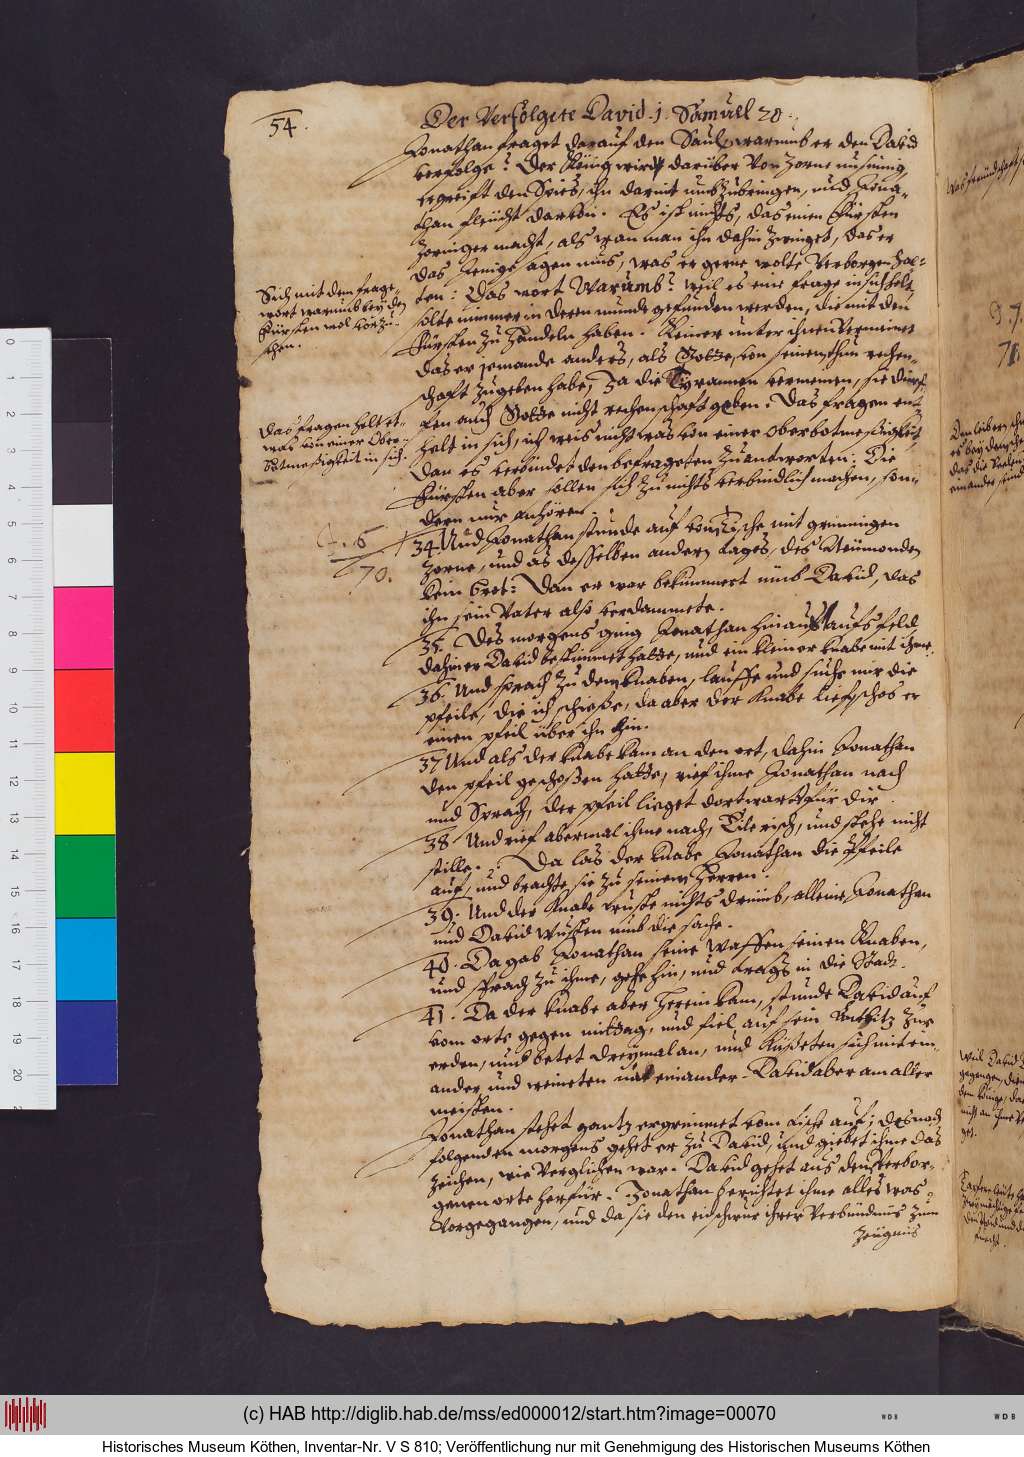 54.
Der Verfolgete David. 1. Samuel 20.
Jonathan fraget darauf den Saul, warumb er den David
verfolge? Der König wird darüber von zorne unsinnig,
ergreift den Spies, ihn darmit umbzubringen, und Jona-
than fleücht darvon. Es ist nichts, das einen Fürsten
zorniger macht, als wan man ihn dahin zwinget, das er
das jenige sagen mus, was er gerne wolte verborgen hal-
ten: Das wort Warumb? weil es eine frage in sich helt,
solte nimmer in deren munde gefunden werden, die mit den
Fürsten zu handeln haben. Keiner unter ihnen vermeinet
das er jemande anders, als Gotte, von seinem thun rechen-
schaft zugeben habe, Ja die Tyrannen vermeinen, sie dürf-
fen auch Gotte nicht rechenschaft geben. Das fragen ent-
helt in sich, ich weis nicht was von einer Oberbotmeßigkeit,
dan es verbindet den befrageten zu antworten: Die
Fürsten aber sollen sich zu nichts verbindlich machen, son-
dern nur anhören.
Sich mit dem frage-
wort warumb bey den
Fürsten wol vorzu-
sehen.
Das fragen helt et-
was von einer Ober-
botmeßigkeit in sich.
6
70.
34. Und Jonathan stunde auf vom Tische mit grimmigen
zorne, und as desselben andern tages, des Neümonden
kein brot: Dan er war bekümmert umb David, das
ihn sein Vater also verdammete.
35. Des morgens ging Jonathan hinaus aufs feld
dahin er David bestimmet hatte, und ein kleiner knabe mit ihme,
36. Und sprach zu dem knaben, lauffe und suche mir die
pfeile, die ich schieße, da aber der Knabe lief, schos er
einen pfeil über ihn hin.
37 Und als der knabe kam an den ort, dahin Jonathan
den pfeil geschoßen hatte, rief ihme Jonathan nach
und sprach, der pfeil lieget dortwarts für dir.
38. Und rief abermal ihme nach, Eile risch, und stehe nicht
stille. Da las der knabe Jonathan die Pfeile
auf, und brachte sie zu seinem Herren.
39. Und der Knabe wuste nichts drumb, alleine Jonathan
und David wusten umb die sache.
40. Da gab Jonathan seine Waffen seinen Knaben,
und sprach zu ihme, gehe hin, und trags in die Stadt.
41. Da der knabe aber herein kam, stunde David auf
vom orte gegen mittag, und fiel auf sein Antlitz zur
erden, und betet dreymal an, und küßeten sich mit ein-
ander und weineten mit einander, David aber am aller
meisten.
Jonathan stehet gantz ergrimmet vom tische auf; des nach
folgenden morgens gehet er zu David, und giebet ihme das
zeichen, wie verglichen war. David gehet aus dem verbor-
genen orte herfür. Jonathan berichtet ihme alles was
vorgegangen, und da sie den eidschwur ihrer Verbündnis zum
zeügnis
(c) HAB http://diglib.hab.de/mss/ed000012/start.htm?image=00070
WDB
WDB
Historisches Museum Köthen, Inventar-Nr. V S 810; Veröffentlichung nur mit Genehmigung des Historischen Museums Köthen